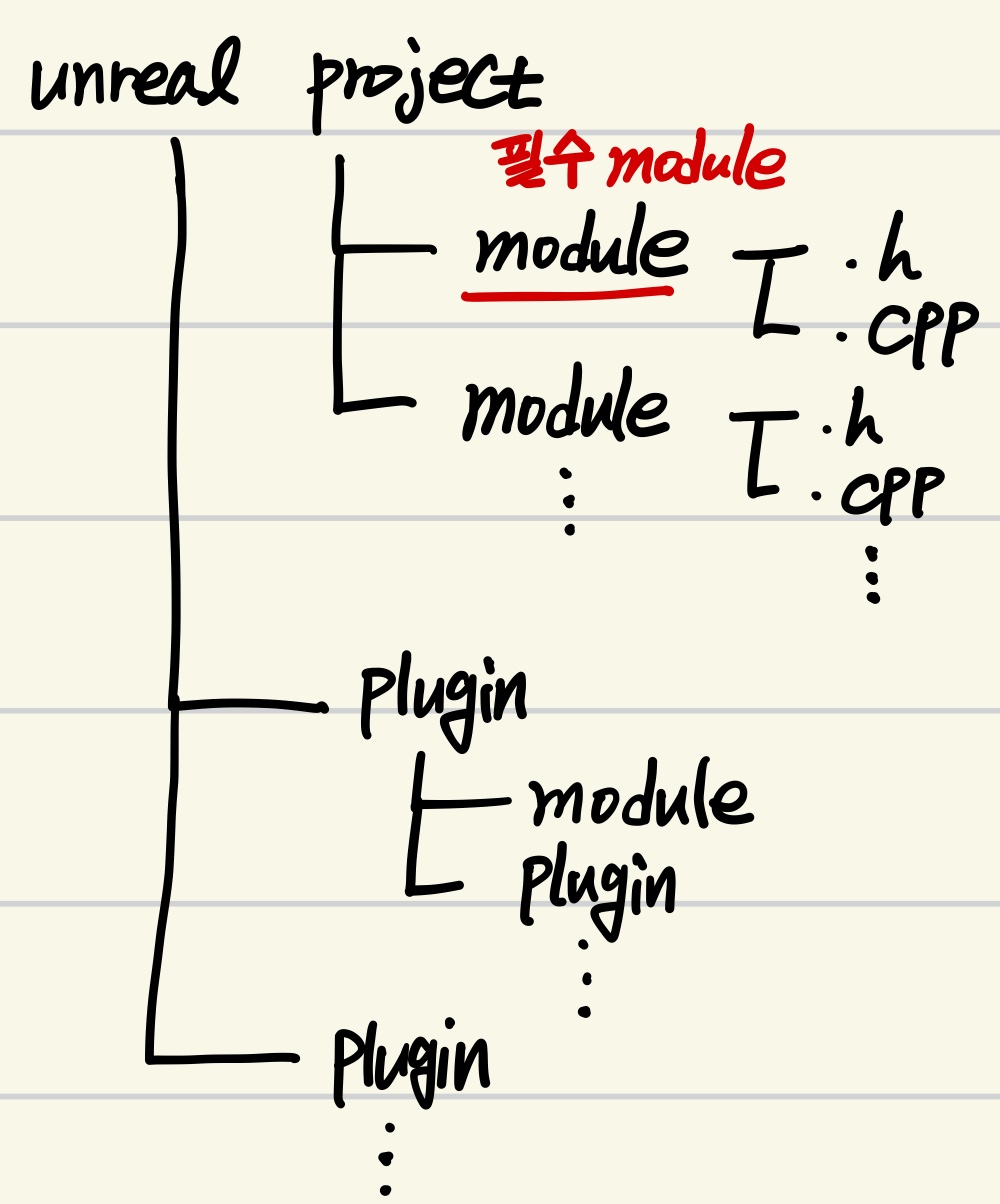 unreal project
필수 module
module .h
.cpp
module .h
.cpp
plugin
module
plugin
plugin